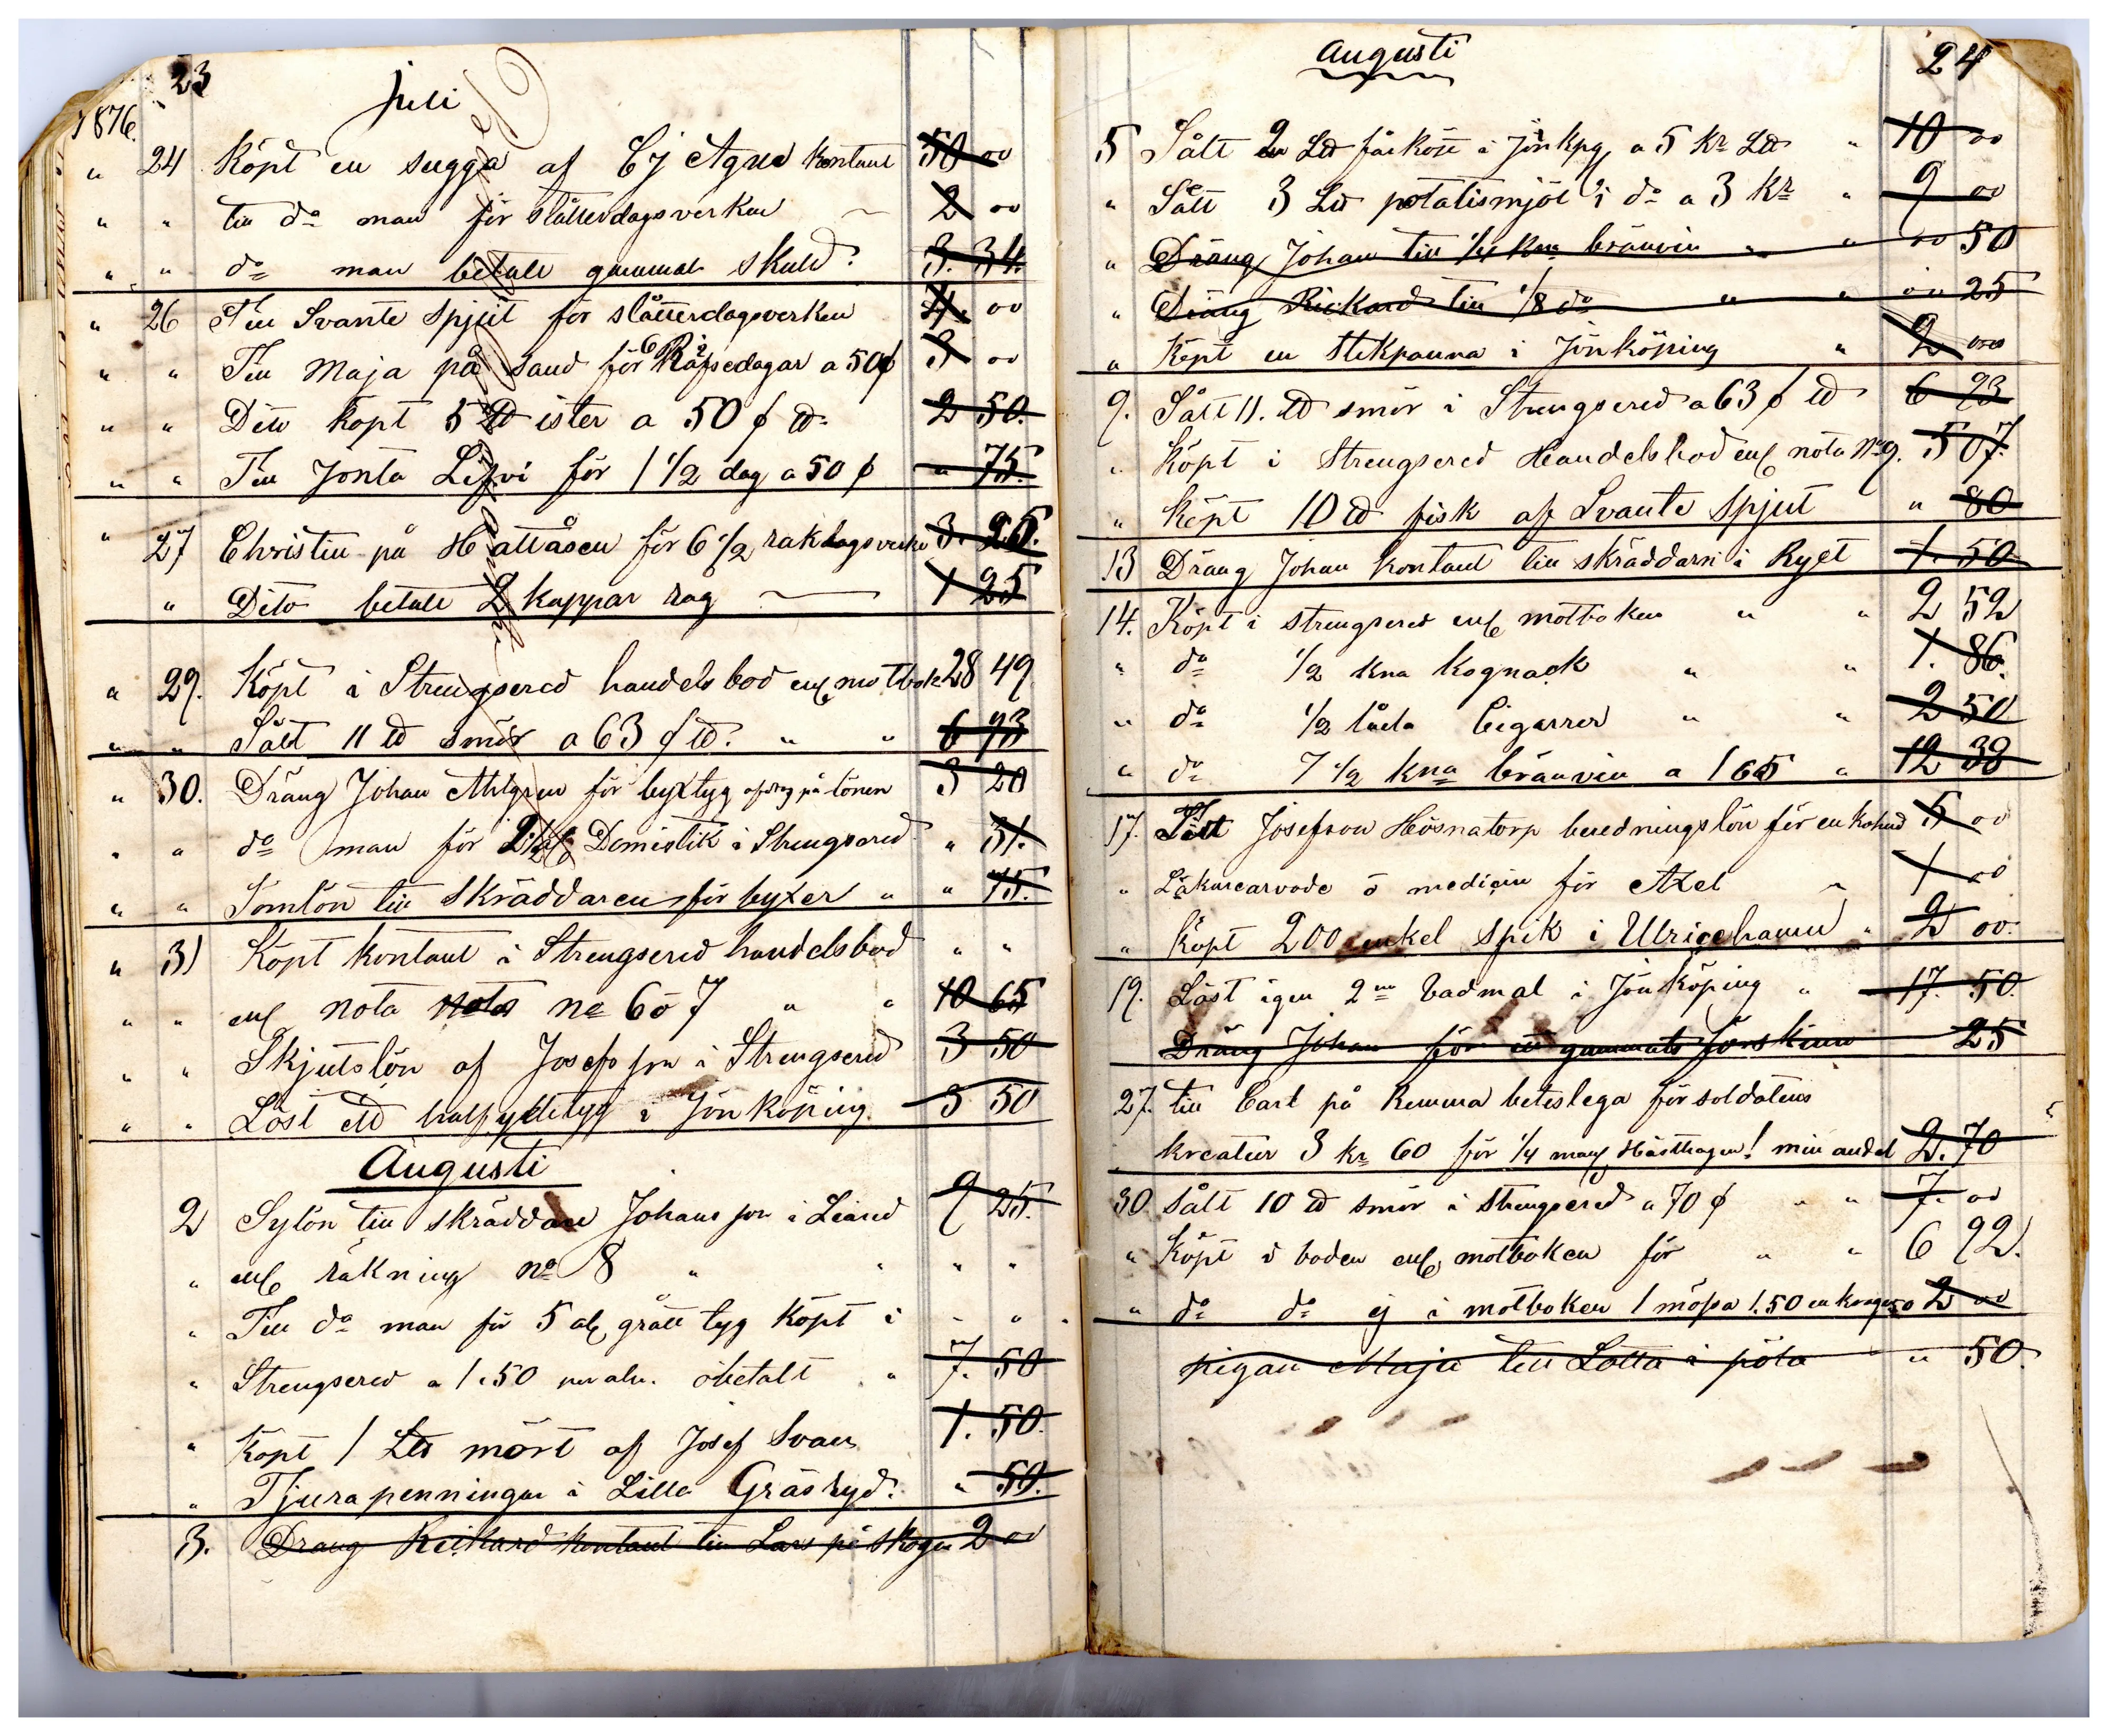 23
juli
1876.
" 24 Köpt en sugga af Cj Agnes kontant 50 00
" " till do man för slåtterdagsverken 2 00
" " do man betalt gammal skuld. 3. 34.
" 26 Till Svante Spjut för slåtterdagsverken 4. 00
" " Till Maja på sand för 6 Räfsedagar a 50 ¢ 3 00
" " Dito köpt 5 ℔ ister a 50 ¢ ℔ 2 50.
" " Till Jonta för 1 1/2 dag a 50 ¢ " 75.
" 27 Christin på Hattåsen för 6 1/2 rakdagsverke 3. 25.
" Dito betalt 2 kappar råg 1 25
" 29. Köpt i Strengsered handelsbod enl motbok 28 49
" " Sålt 11 ℔ smör a 63 ¢ ℔. " " 6 93
" 30. Dräng Johan Ahlgren för byxtyg afdrag på lönen 3 20
" " do man för Domestik i Strengsered " 31.
" " Sömlön till Skräddaren för byxer " " 75.
" 31 Köpt kontant i Strengsered handelsbod " "
" " enl nota nota no 6 o 7 " " 10 65
" " Skjutslön af Josefsson i Strengsered 3 50
" " Löst ett halfylletyg i Jönköping. 3 50
Augusti
2 Sylön till skräddare Johansson i Liared 9 25.
" enl räkning no 8 " " " "
" Till do man för 5 aln grått tyg köpt i " " "
" Strengsered a 1.50 pr aln. obetalt " 7. 50
" Köpt 1 L℔ mört af Josef Svan 1. 50.
" Tjurapenningar i Lilla Gräsryd. " 50.
3. Dräng Rickard kontant till Lars på skogen 2 00
Augusti
24
5 Sålt 2 L℔ fårkött i Jönkpg a 5 Kr L℔ " 10 00
" Sålt 3 L℔ potatismjöl i do a 3 Kr " 9 00
" Dräng Johan till 1/4 kna bränvin " " 00 50
" Dräng Rickard till 1/8 do " " 00 25
" Köpt en stekpanna i Jönköping " 2 00
9. Sålt 11. ℔ smör i Strengsered a 63 ¢ ℔ 6 93
" Köpt i Strengsered Handelsbod enl nota No 9. 5 07.
" Köpt 10 ℔ fisk af Svante Spjut " 80
13 Dräng Johan kontant till skräddarn i Ryet 1. 50
14. Köpt i strengsered enl motboken " " 2 52
" do 1/2 kna kognack " " 1. 86.
" do 1/2 låda Cigarrer " " 2 50
" do 7 1/2 kna bränvin a 1 65 " 12 38
17. Josefson Hösnatorp beredningslön för en kohud 5 00
" Läkarearvode o medicin för Axel " 1 00
" Köpt 200 enkel spik i Ulricehamn " 2 00.
19. Löst igen 2 vadmal i Jönköping " 17. 50.
Dräng Johan för ett gammalt förskinn 25
27. till Carl på Remma beteslega för soldatens
kreatur 3 kr 60 för 1/4 Hästhagen! min andel 2. 70
30. sålt 10 ℔ smör i strengsered a 70 ¢ " " 7. 00
" Köpt i boden enl motboken för " " 6 92.
" do do ej i motboken 1 mössa 1.50 en krage 50 2 00
pigan Maja till Lotta i " 50.